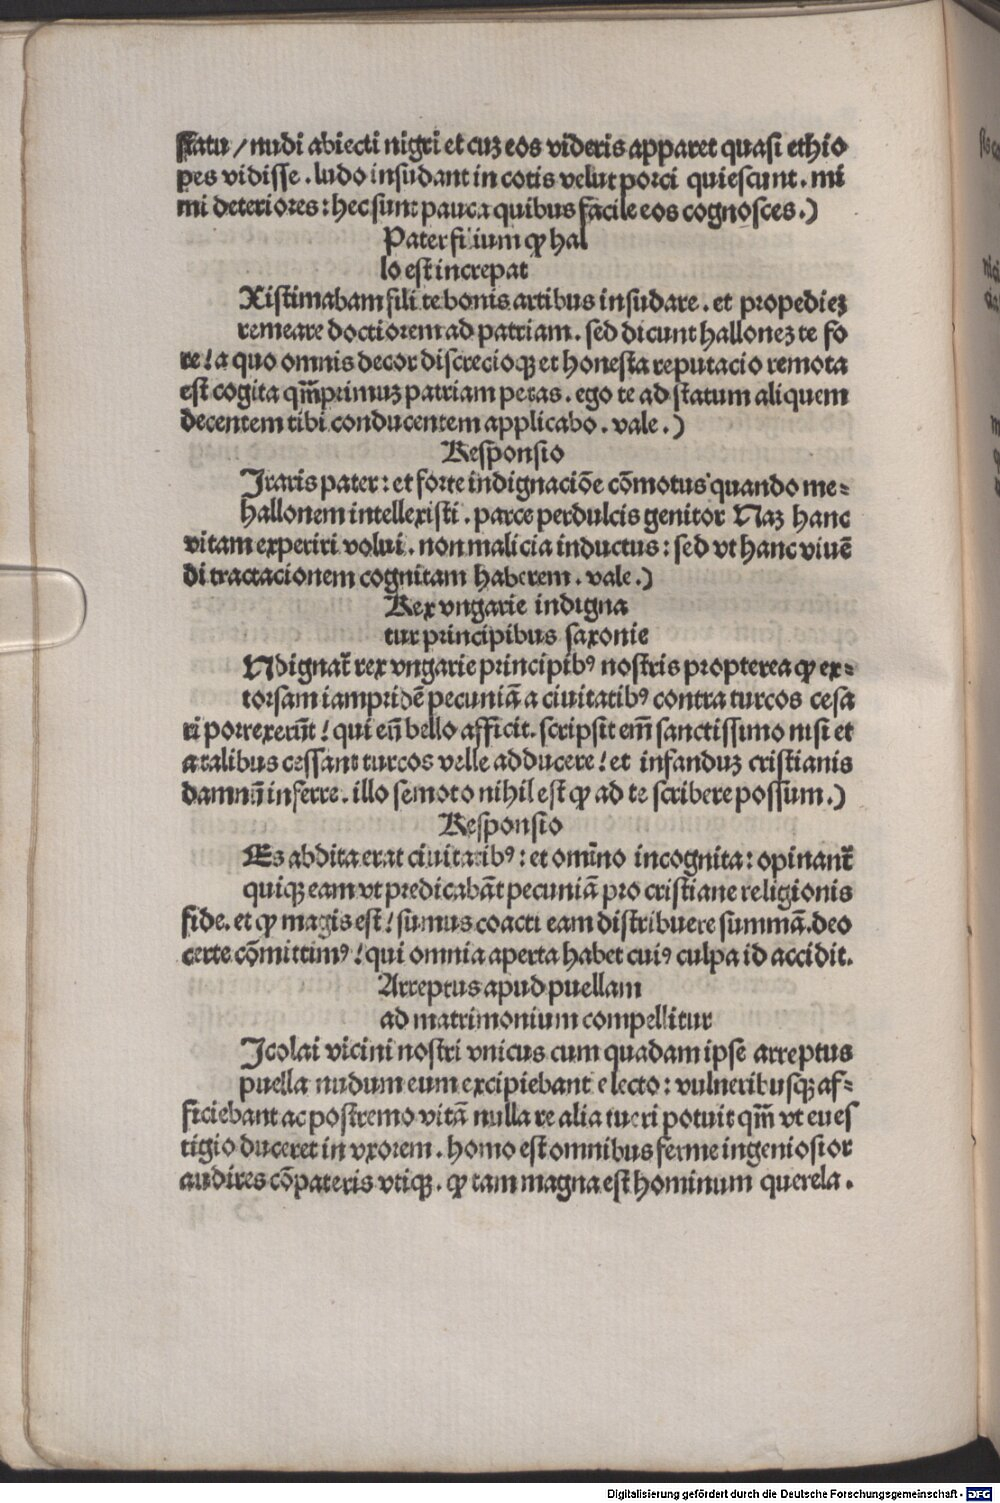 statu / nudi abiecti nigri et cuꝫ eos videris apparet quasi ethio
pes vidisse . ludo insudant in cotis velut porci quiescunt . mi
mi deteriores : hec sunt pauca quibus facile eos cognosces . )
Pater filium ꝙ hal
lo est increpat
Xistimabam fili te bonis artibus insudare . et propedieꝫ
remeare doctiorem ad patriam . sed dicunt halloneꝫ te fo
re / a quo omnis decor discrecioqꝫ et honesta reputacio remota
est cogita qm̄primuꝫ patriam petas . ego te ad statum aliquem
decentem tibi conducentem applicabo . vale . )
Responsio
Iraris pater : et forte indignaciōe cōmotus quando me-
hallonem intellexisti . parce perdulcis genitor Naꝫ hanc
vitam experiri volui . non malicia inductus : sed vt hanc viuē
di tractacionem cognitam haberem . vale . )
Rex vngarie indigna
tur principibus saxonie
Ndignat̄ rex vngarie principibꝰ nostris propterea ꝙ ex-
torsam iampridē pecuniā a ciuitatibꝰ contra turcos cesa
ri porrexerūt / qui eū bello afficit . scripsit em̄ sanctissimo nisi et
a talibus cessant turcos velle adducere / et infanduꝫ cristianis
damnū inferre . illo semoto nihil est ꝙ ad te scribere possum . )
Responsio
Es abdita erat ciuitatibꝰ : et omīno incognita : opinant̄
quiqꝫ eam vt predicabāt pecuniā pro cristiane religionis
fide . et ꝙ magis est / sumus coacti eam distribuere summā . deo
certe cōmittimꝰ / qui omnia aperta habet cuiꝰ culpa id accidit .
Arreptus apud puellam
ad matrimonium compellitur
Icolai vicini nostri vnicus cum quadam ipse arreptus
puella nudum eum excipiebant e lecto : vulneribusqꝫ af-
ficiebant ac postremo vitā nulla re alia tueri potuit qm̄ vt eues
tigio duceret in vxorem . homo est omnibus ferme ingeniosior
audires cōpateris vtiqꝫ . ꝙ tam magna est hominum querela .
Digitalisierung gefördert durch die Deutsche Forschungsgemeinschaft - DFG